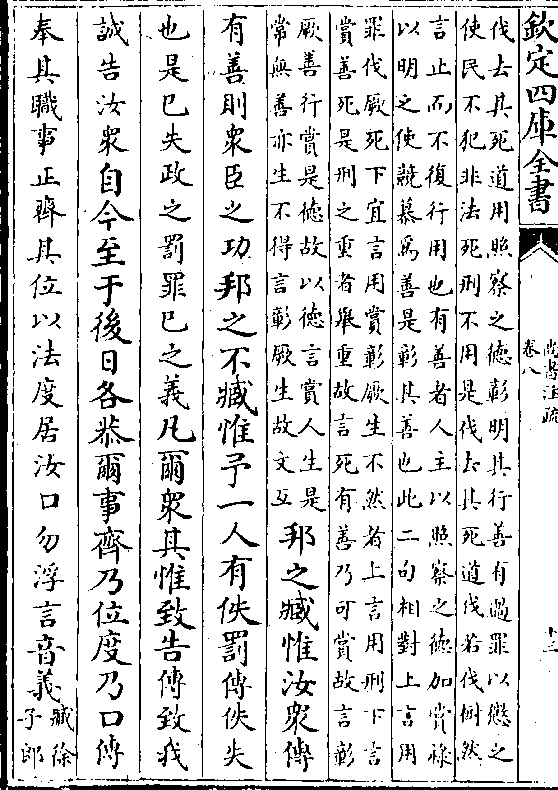 欽定四庫全書
尚書注疏
卷八
十三
伐去其死道用照察之德彰明其行善有過罪以懲之
使民不犯非法死刑不用是伐去其死道伐若伐樹然
言止而不復行用也有善者人主以照察之德加賞祿
以明之使競慕為善是彰其善也此二句相對上言用
罪伐厥死下宜言用賞彰厥生不然者上言用刑下言
賞善死是刑之重者舉重故言死有善乃可賞故言彰
厥善行賞是德故以德言賞人生是
常無善亦生不得言彰厥生故文互
邦之臧惟汝衆傳
有善則衆臣之功邦之不臧惟予一人有佚罰傳佚失
也是已失政之罰罪已之義凡爾衆其惟致告傳致我
誠告汝衆自今至于後日各恭爾事齊乃位度乃口傳
奉其職事正齊其位以法度居汝口勿浮言音義
臧徐
子郎